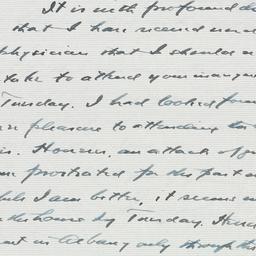 It is with profound
that I have received
physician that I should
take to attend your inaugu
Tuesday. I had looked for
pleasure to attending
However, an attack of
prostrated for the past
I am better, it seems
the house by Tuesday.
in Albany only through